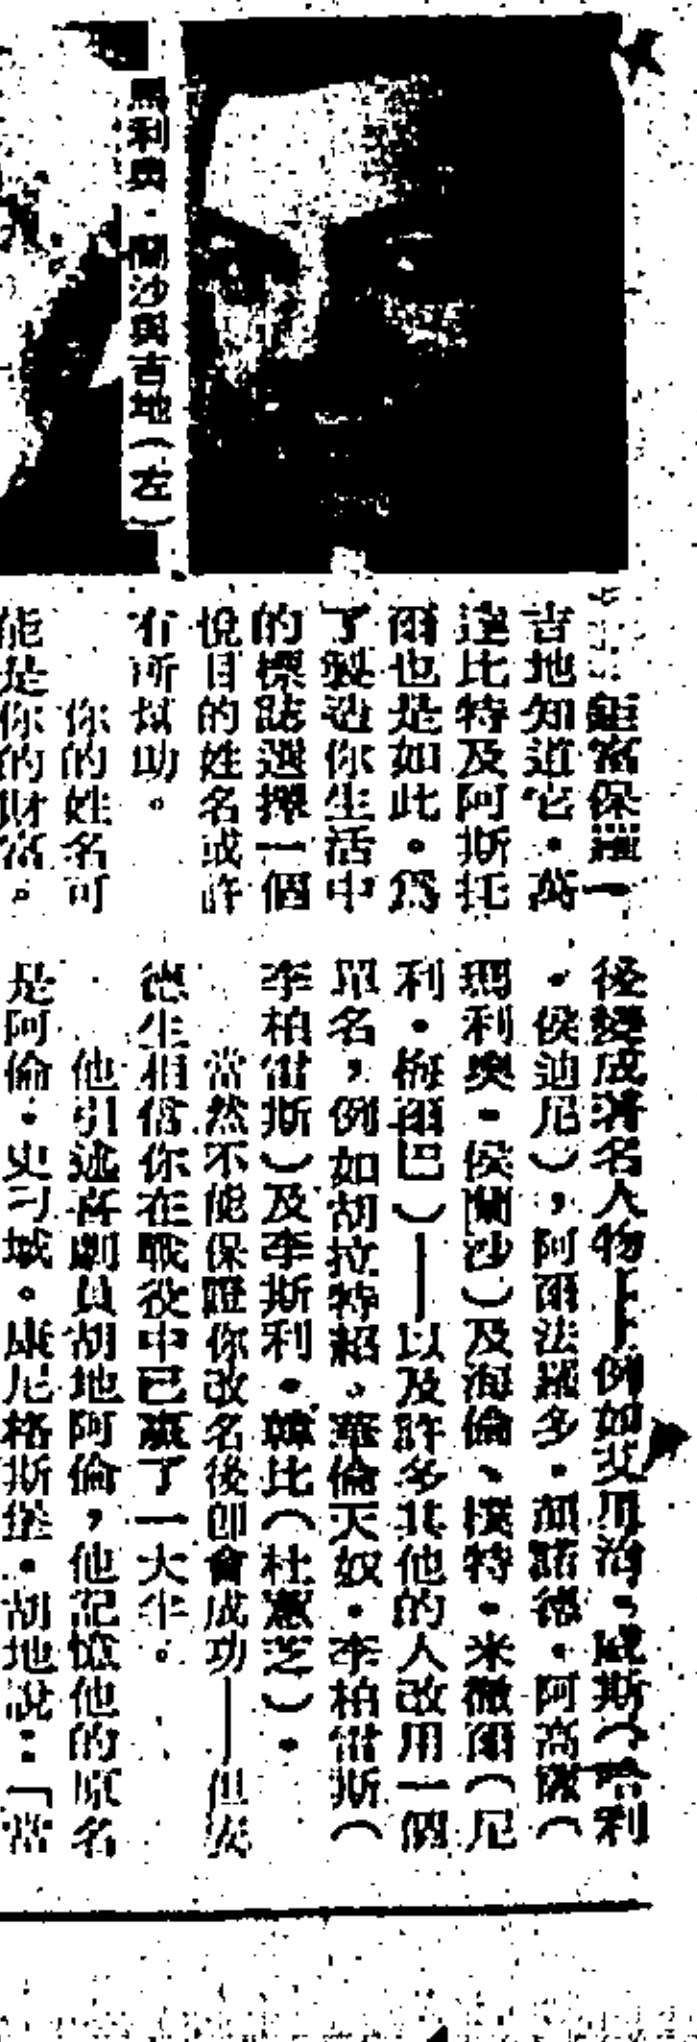 馬利奧・蘭沙與吉地(左)
鉅富保羅一
吉地知道它。萬
達比特及阿斯托
爾也是如此。為
了製造你生活中
的標誌選擇一個
悅目的姓名或許
有所幫助。
你的姓名可
能是你的財富。
後變成著名人物——例如艾 治・威斯(哈利
・侯迪尼),阿爾法羅多・ 諾德・阿高 (
瑪利奧・侯蘭沙)及海倫、樸特・米徹爾(尼
利・梅爾巴)——以及許多其他的人改用一個
單名,例如胡拉特紹。華倫天奴・李柏雷斯(
李柏雷斯)及李斯利・韓比(杜惠芝)。
當然不能保證你改名後即會成功——但安
德生相信你在戰役中已贏了一大半。
他引述喜劇員胡地阿倫,他記憶他的原名
是阿倫・史刁城。康尼格斯堡・胡地說:「當